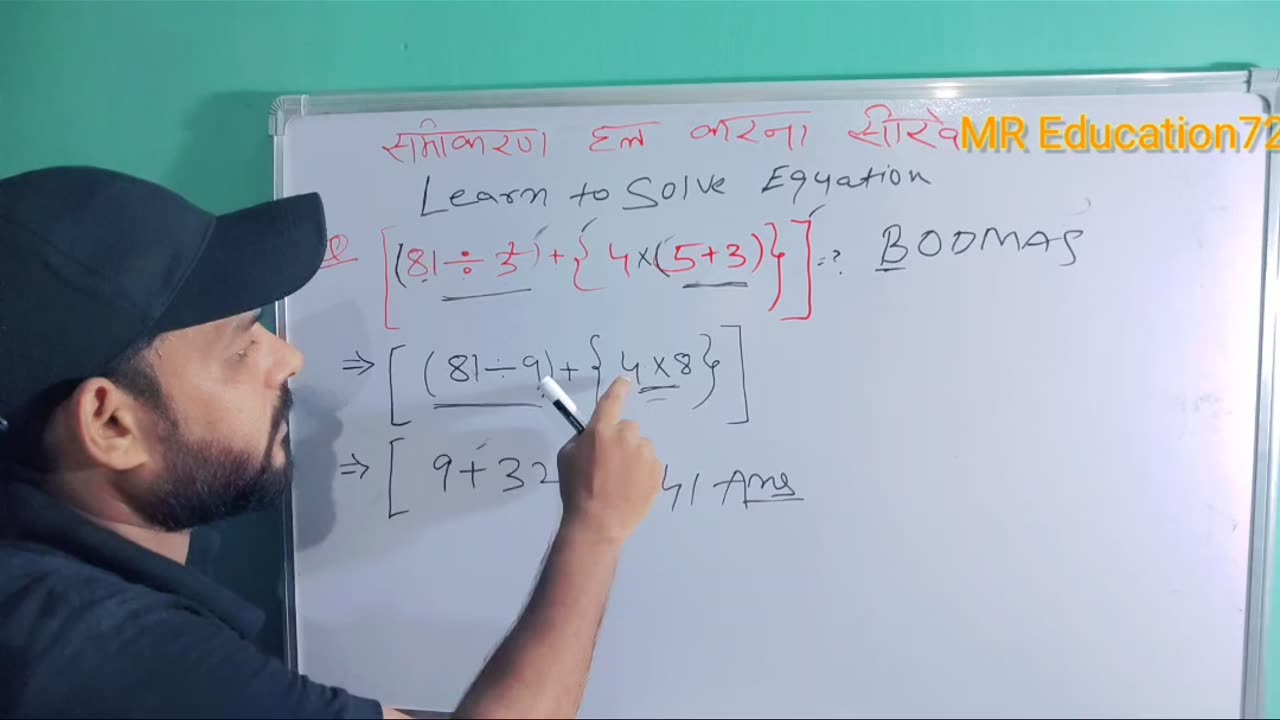 समीकरण हल करना सीखे
MR Education72
Learn to Solve Eqyation
Q [(81 ÷ 3²) + { 4 × (5+3)}] = ? BODMAS
⇒ [ (81 ÷ 9) + { 4 × 8 } ]
⇒ [ 9 + 32 41 Ans